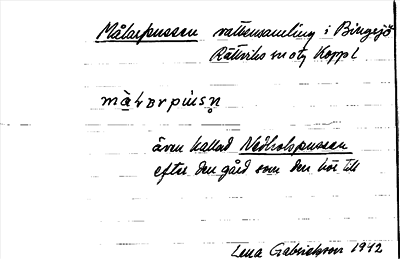 Målarpussen vattensamling i Bingsjö
Rättviks sn o tg Koppl
även kallad Nedholspussen
efter den gård som den hör till
Lena Gabrielsson 1912